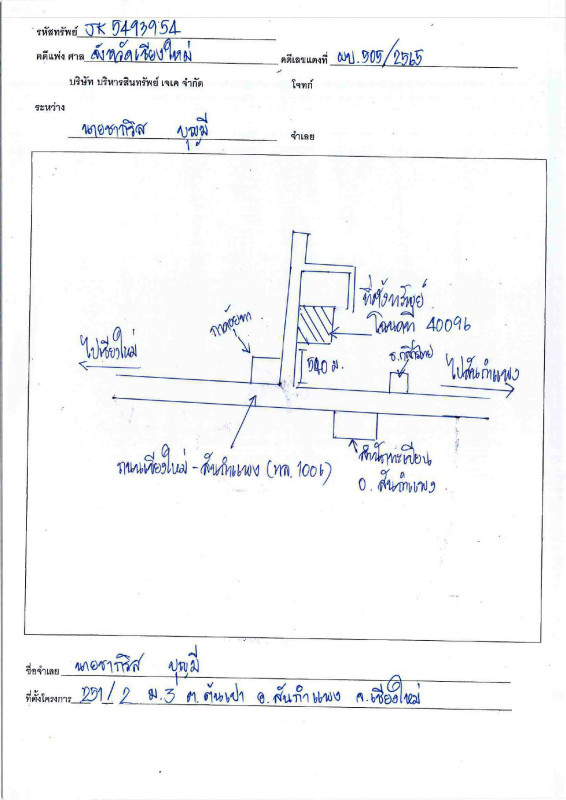 รหัสทรัพย์ JK 5493954
คดีแพ่ง ศาล จังหวัดเชียงใหม่ คดีเลขแดงที่ ผบ.505/2565
บริษัท บริหารสินทรัพย์ เจเค จำกัด โจทก์
ระหว่าง
บุญมี จำเลย
ที่ตั้งทรัพย์
โฉนดที่ 40096
ไปเชียงใหม่
540 ม.
ธ.กสิกรไทย
ไปสันกำแพง
ถนนเชียงใหม่ - สันกำแพง (ทล. 1006)
อ. สันกำแพง
ชื่อจำเลย บุญมี
ที่ตั้งโครงการ 251/2 ม.3 ต.ต้นเปา อ.สันกำแพง จ.เชียงใหม่